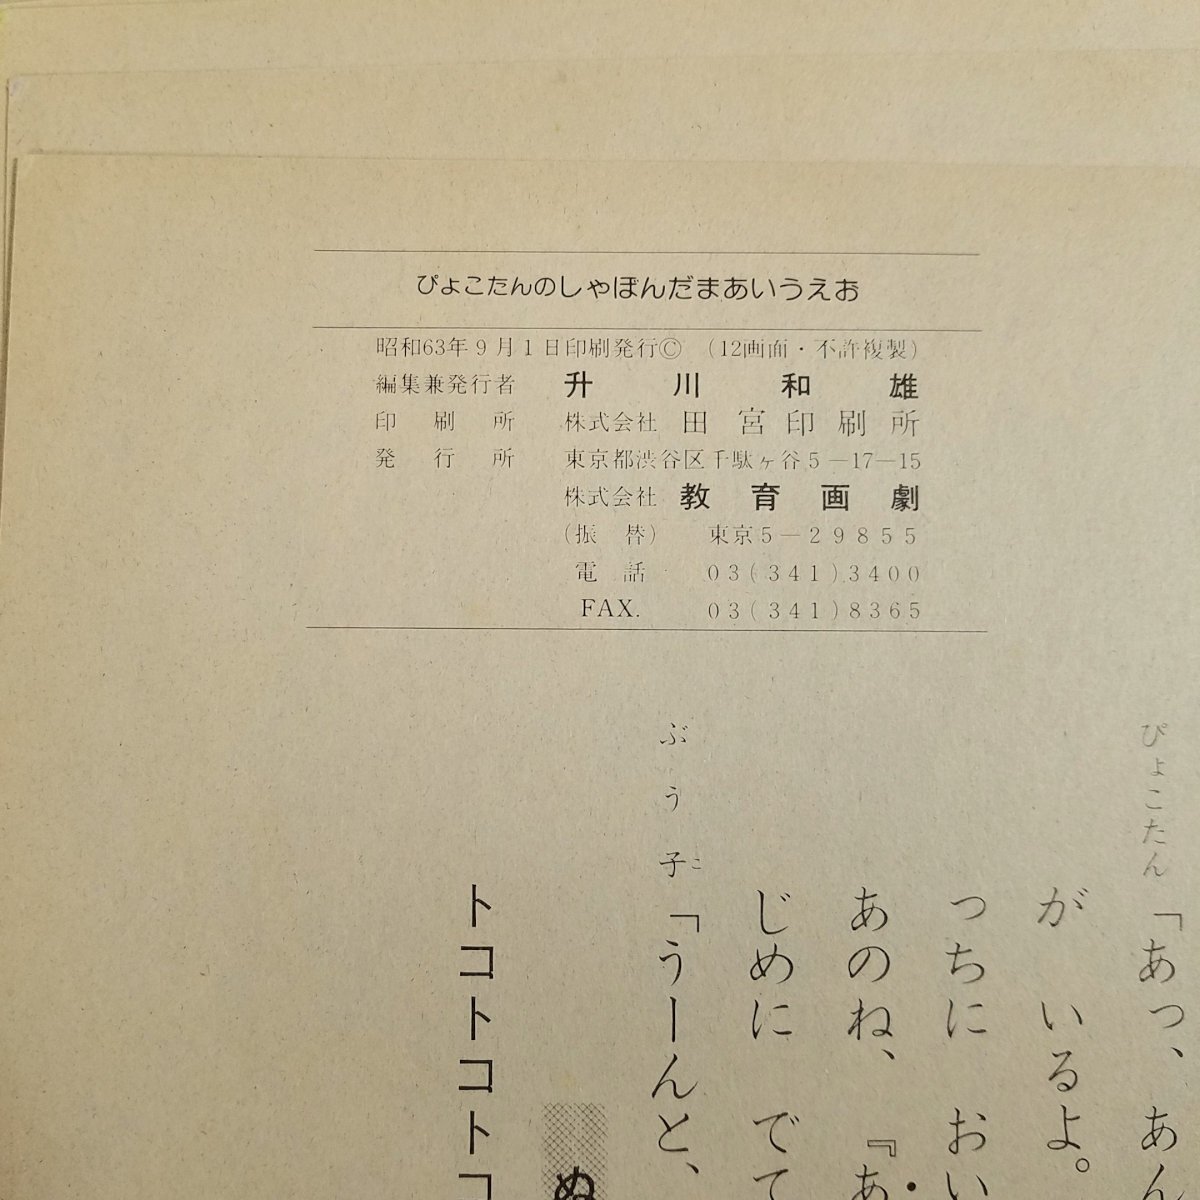 ぴょこたんのしゃぼんだまあいうえお
昭和63年9月1日印刷発行© (12画面・不許複製)
編集兼発行者 升川和雄
印刷所 株式会社 田宮印刷所
発行所 東京都渋谷区千駄ヶ谷5-17-15
株式会社 教育画劇
(振替) 東京5-29855
電話 03(341)3400
FAX. 03(341)8365
ぴょこたん 「あっ、あん
が いるよ。
っちに おい
あのね、『あ
じめに でて
ぶう子 「うーんと、
ぬ
トコトコトコ